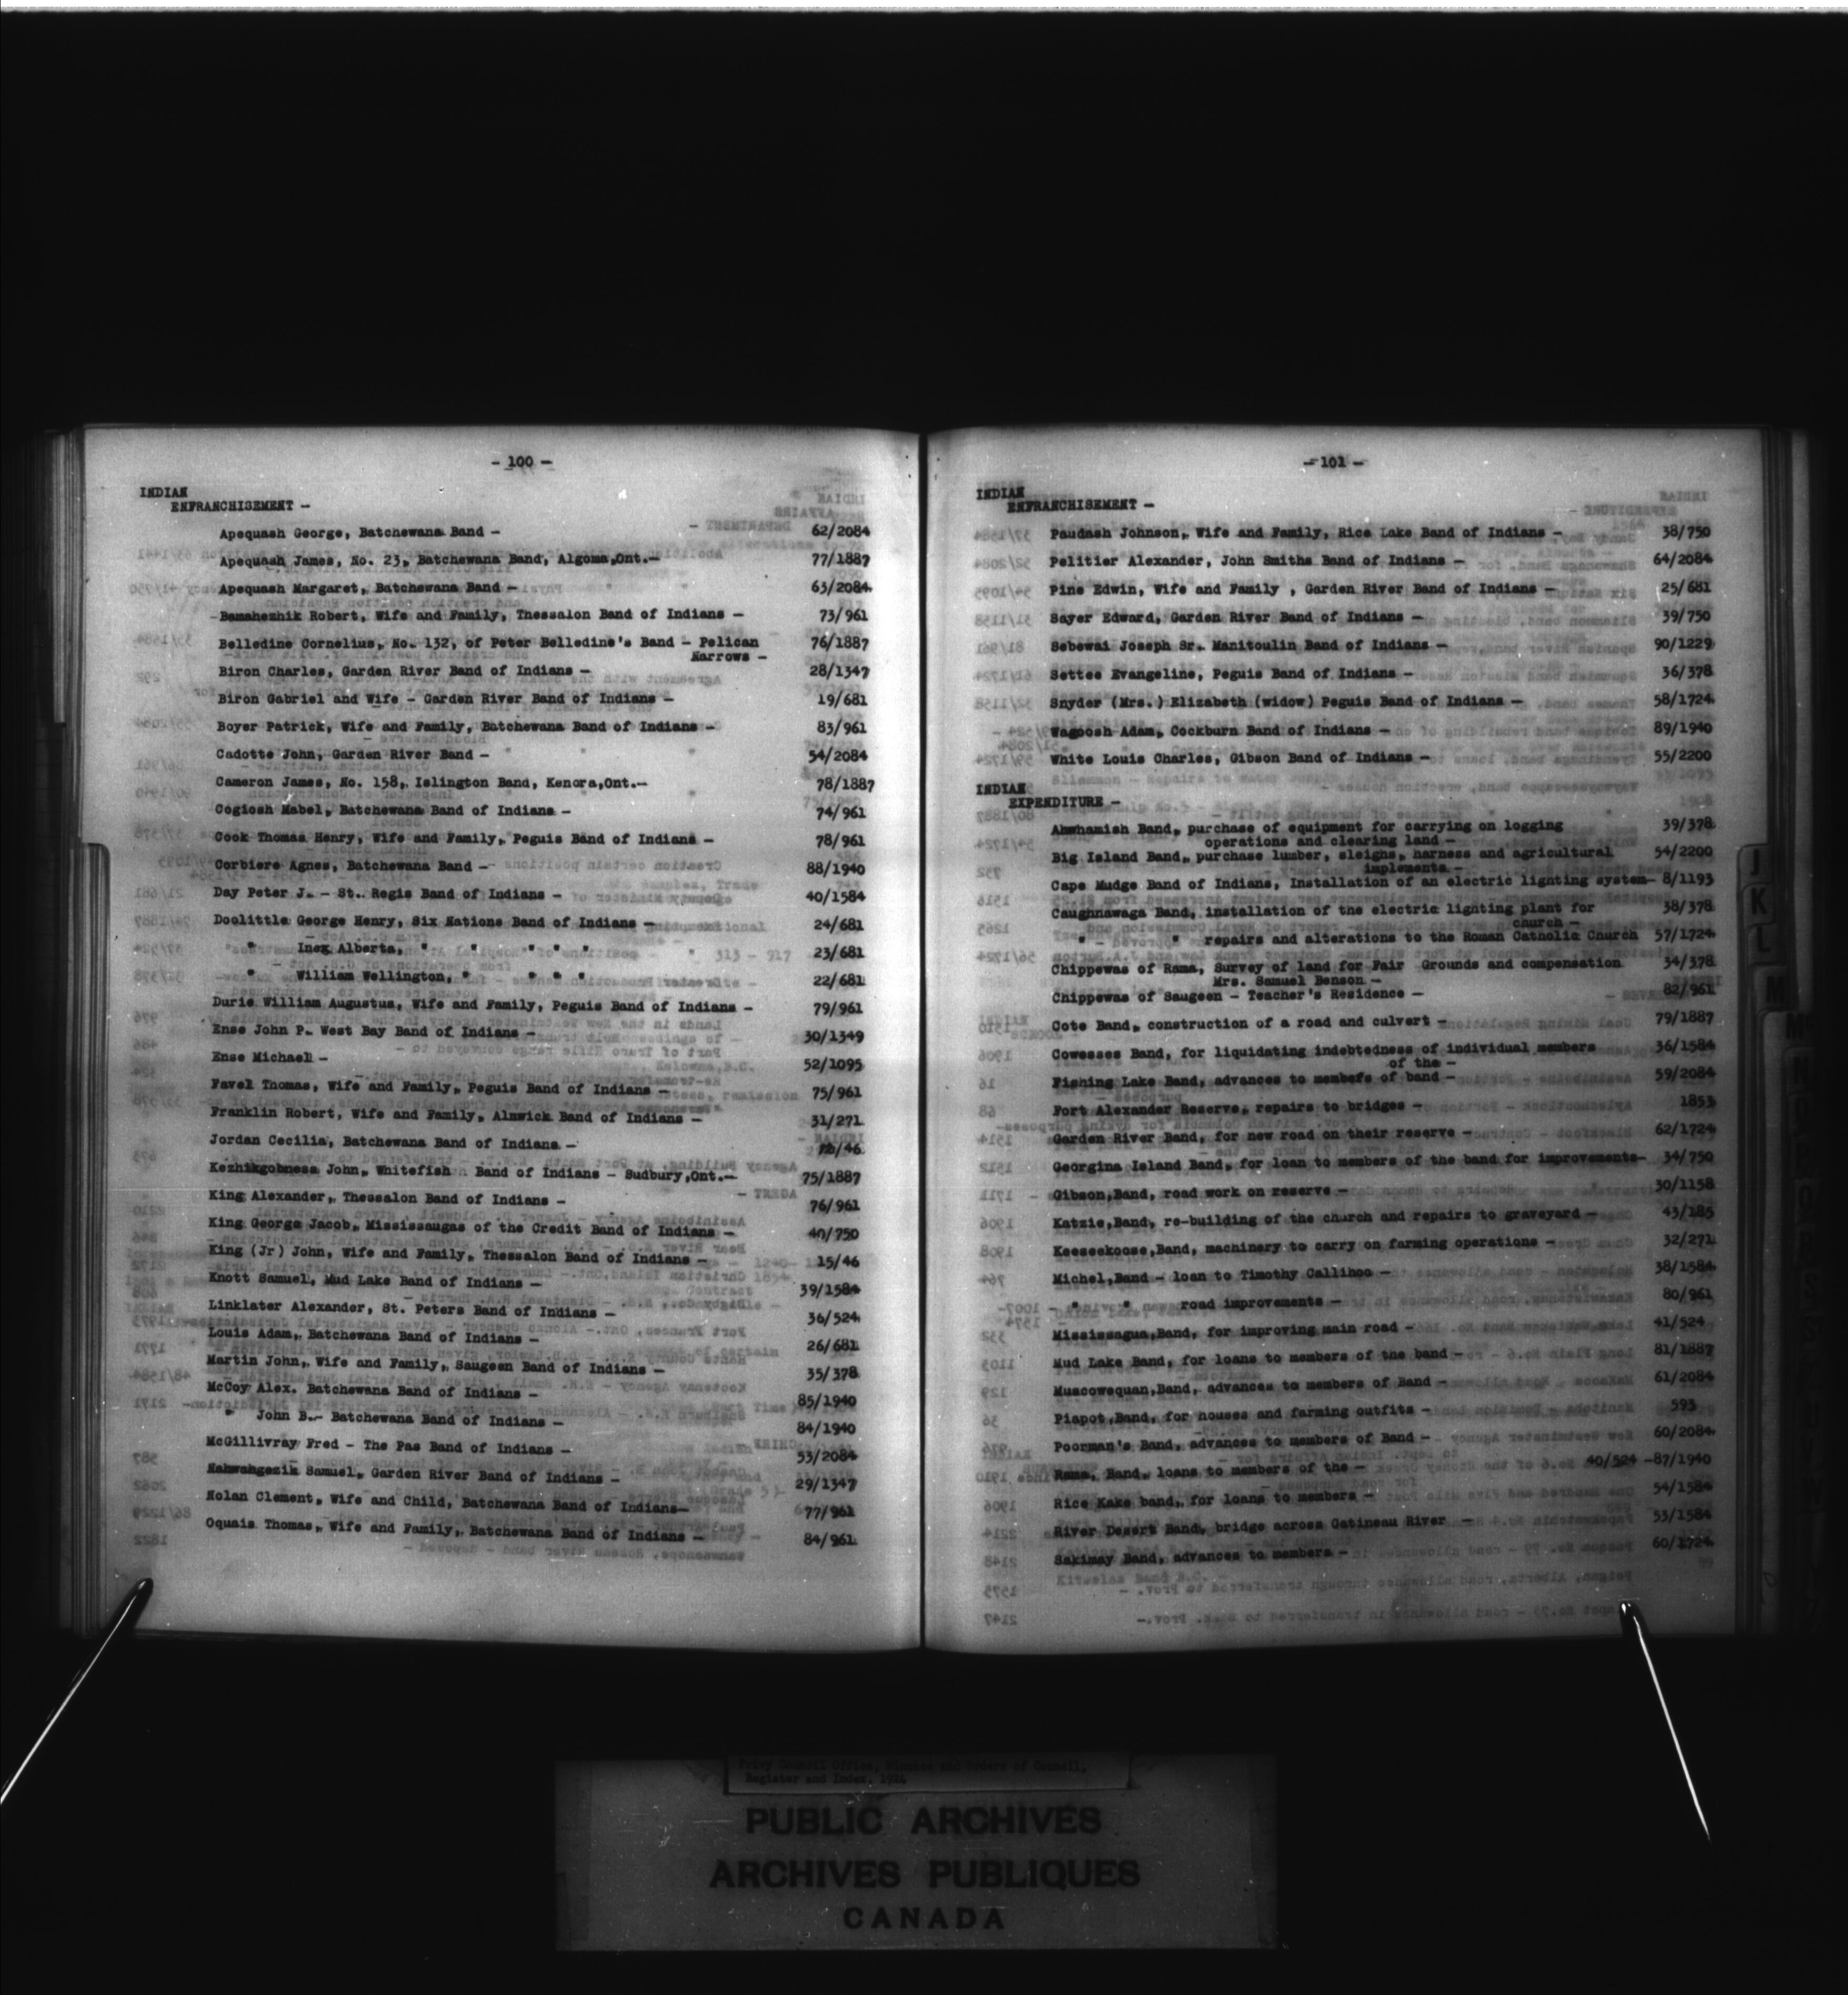 - 100 -
INDIAN
ENFRANCHISEMENT -
Apequash George, Batchewana Band - 62/2084
Apequash James, No. 23, Batchewana Band, Algoma,Ont.- 77/1887
Apequash Margaret, Batchewana Band - 63/2084
Bamahezhik Robert, Wife and Family, Thessalon Band of Indians - 73/961
Belledine Cornelius, No. 132, of Peter Belledine's Band - Pelican 76/1887
Narrows -
Biron Charles, Garden River Band of Indians - 28/1347
Biron Gabriel and Wife - Garden River Band of Indians - 19/681
Boyer Patrick, Wife and Family, Batchewana Band of Indians - 83/961
Cadotte John, Garden River Band - 54/2084
Cameron James, No. 158, Islington Band, Kenora,Ont.- 78/1887
Cogiosh Mabel, Batchewana Band of Indians - 74/961
Cook Thomas Henry, Wife and Family, Peguis Band of Indians - 78/961
Corbiere Agnes, Batchewana Band - 88/1940
Day Peter J. - St. Regis Band of Indians - 40/1584
Doolittle George Henry, Six Nations Band of Indians - 24/681
" Inez Alberta, " " " " " 23/681
" William Wellington, " " " " 22/681
Durie William Augustus, Wife and Family, Peguis Band of Indians - 79/961
Ense John P. West Bay Band of Indians - 30/1349
Ense Michael - 52/1095
Favel Thomas, Wife and Family, Peguis Band of Indians - 75/961
Franklin Robert, Wife and Family, Alnwick Band of Indians - 31/271
Jordan Cecilia, Batchewana Band of Indians - /46
Kezhikgobness John, Whitefish Band of Indians - Sudbury,Ont.- 75/1887
King Alexander, Thessalon Band of Indians - 76/961
King George Jacob, Mississaugas of the Credit Band of Indians - 40/750
King (Jr) John, Wife and Family, Thessalon Band of Indians - 15/46
Knott Samuel, Mud Lake Band of Indians - 39/1584
Linklater Alexander, St. Peters Band of Indians - 36/524
Louis Adam, Batchewana Band of Indians - 26/681
Martin John, Wife and Family, Saugeen Band of Indians - 35/378
McCoy Alex. Batchewana Band of Indians - 85/1940
" John B.- Batchewana Band of Indians - 84/1940
McGillivray Fred - The Pas Band of Indians - 53/2084
Samuel, Garden River Band of Indians - 29/1347
Nolan Clement, Wife and Child, Batchewana Band of Indians- 77/961
Oquais Thomas, Wife and Family, Batchewana Band of Indians - 84/961
- 101 -
INDIAN
ENFRANCHISEMENT -
Paudash Johnson, Wife and Family, Rice Lake Band of Indians - 38/750
Pelitier Alexander, John Smiths Band of Indians - 64/2084
Pine Edwin, Wife and Family , Garden River Band of Indians - 25/681
Sayer Edward, Garden River Band of Indians - 39/750
Sebewai Joseph Sr. Manitoulin Band of Indians - 90/1229
Settee Evangeline, Peguis Band of Indians - 36/378
Snyder (Mrs.) Elizabeth (widow) Peguis Band of Indians - 58/1724
Wagoosh Adam, Cockburn Band of Indians - 89/1940
White Louis Charles, Gibson Band of Indians - 55/2200
INDIAN
EXPENDITURE -
Ahwhamish Band, purchase of equipment for carrying on logging 39/378
operations and clearing land -
Big Island Band, purchase lumber, sleighs, harness and agricultural 54/2200
implements -
Cape Mudge Band of Indians, Installation of an electric lighting system- 8/1193
Caughnawaga Band, installation of the electric lighting plant for 38/378
church -
" " repairs and alterations to the Roman Catholic Church 57/1724
Chippewas of Rama, Survey of land for Fair Grounds and compensation 34/378
Mrs. Samuel Benson -
Chippewas of Saugeen - Teacher's Residence - 82/961
Cote Band, construction of a road and culvert - 79/1887
Cowesses Band, for liquidating indebtedness of individual members 36/1584
of the -
Fishing Lake Band, advances to members of band - 59/2084
Fort Alexander Reserve, repairs to bridges - 1853
Garden River Band, for new road on their reserve - 62/1724
Georgina Island Band, for loan to members of the band for improvements- 34/750
Gibson,Band, road work on reserve - 30/1158
Katzie,Band, re-building of the church and repairs to graveyard - 43/185
Keeseekoose,Band, machinery to carry on farming operations - 32/271
Michel,Band - loan to Timothy Callihoo - 38/1584
" " road improvements - 80/961
Mississagua,Band, for improving main road - 41/524
Mud Lake Band, for loans to members of the band - 81/1887
Muscowequan,Band, advances to members of Band - 61/2084
Piapot,Band, for houses and farming outfits - 593
Poorman's Band, advances to members of Band - 60/2084
Rama, Band, loans to members of the - 40/524 -87/1940
Rice Kake band, for loans to members - 54/1584
River Desert Band, bridge across Gatineau River - 53/1584
Sakimay Band, advances to members - 60/1724
J
K
L
M
N
Privy Council Office, Minutes and Orders of Council,
Register and Index, 1924
PUBLIC ARCHIVES
ARCHIVES PUBLIQUES
CANADA